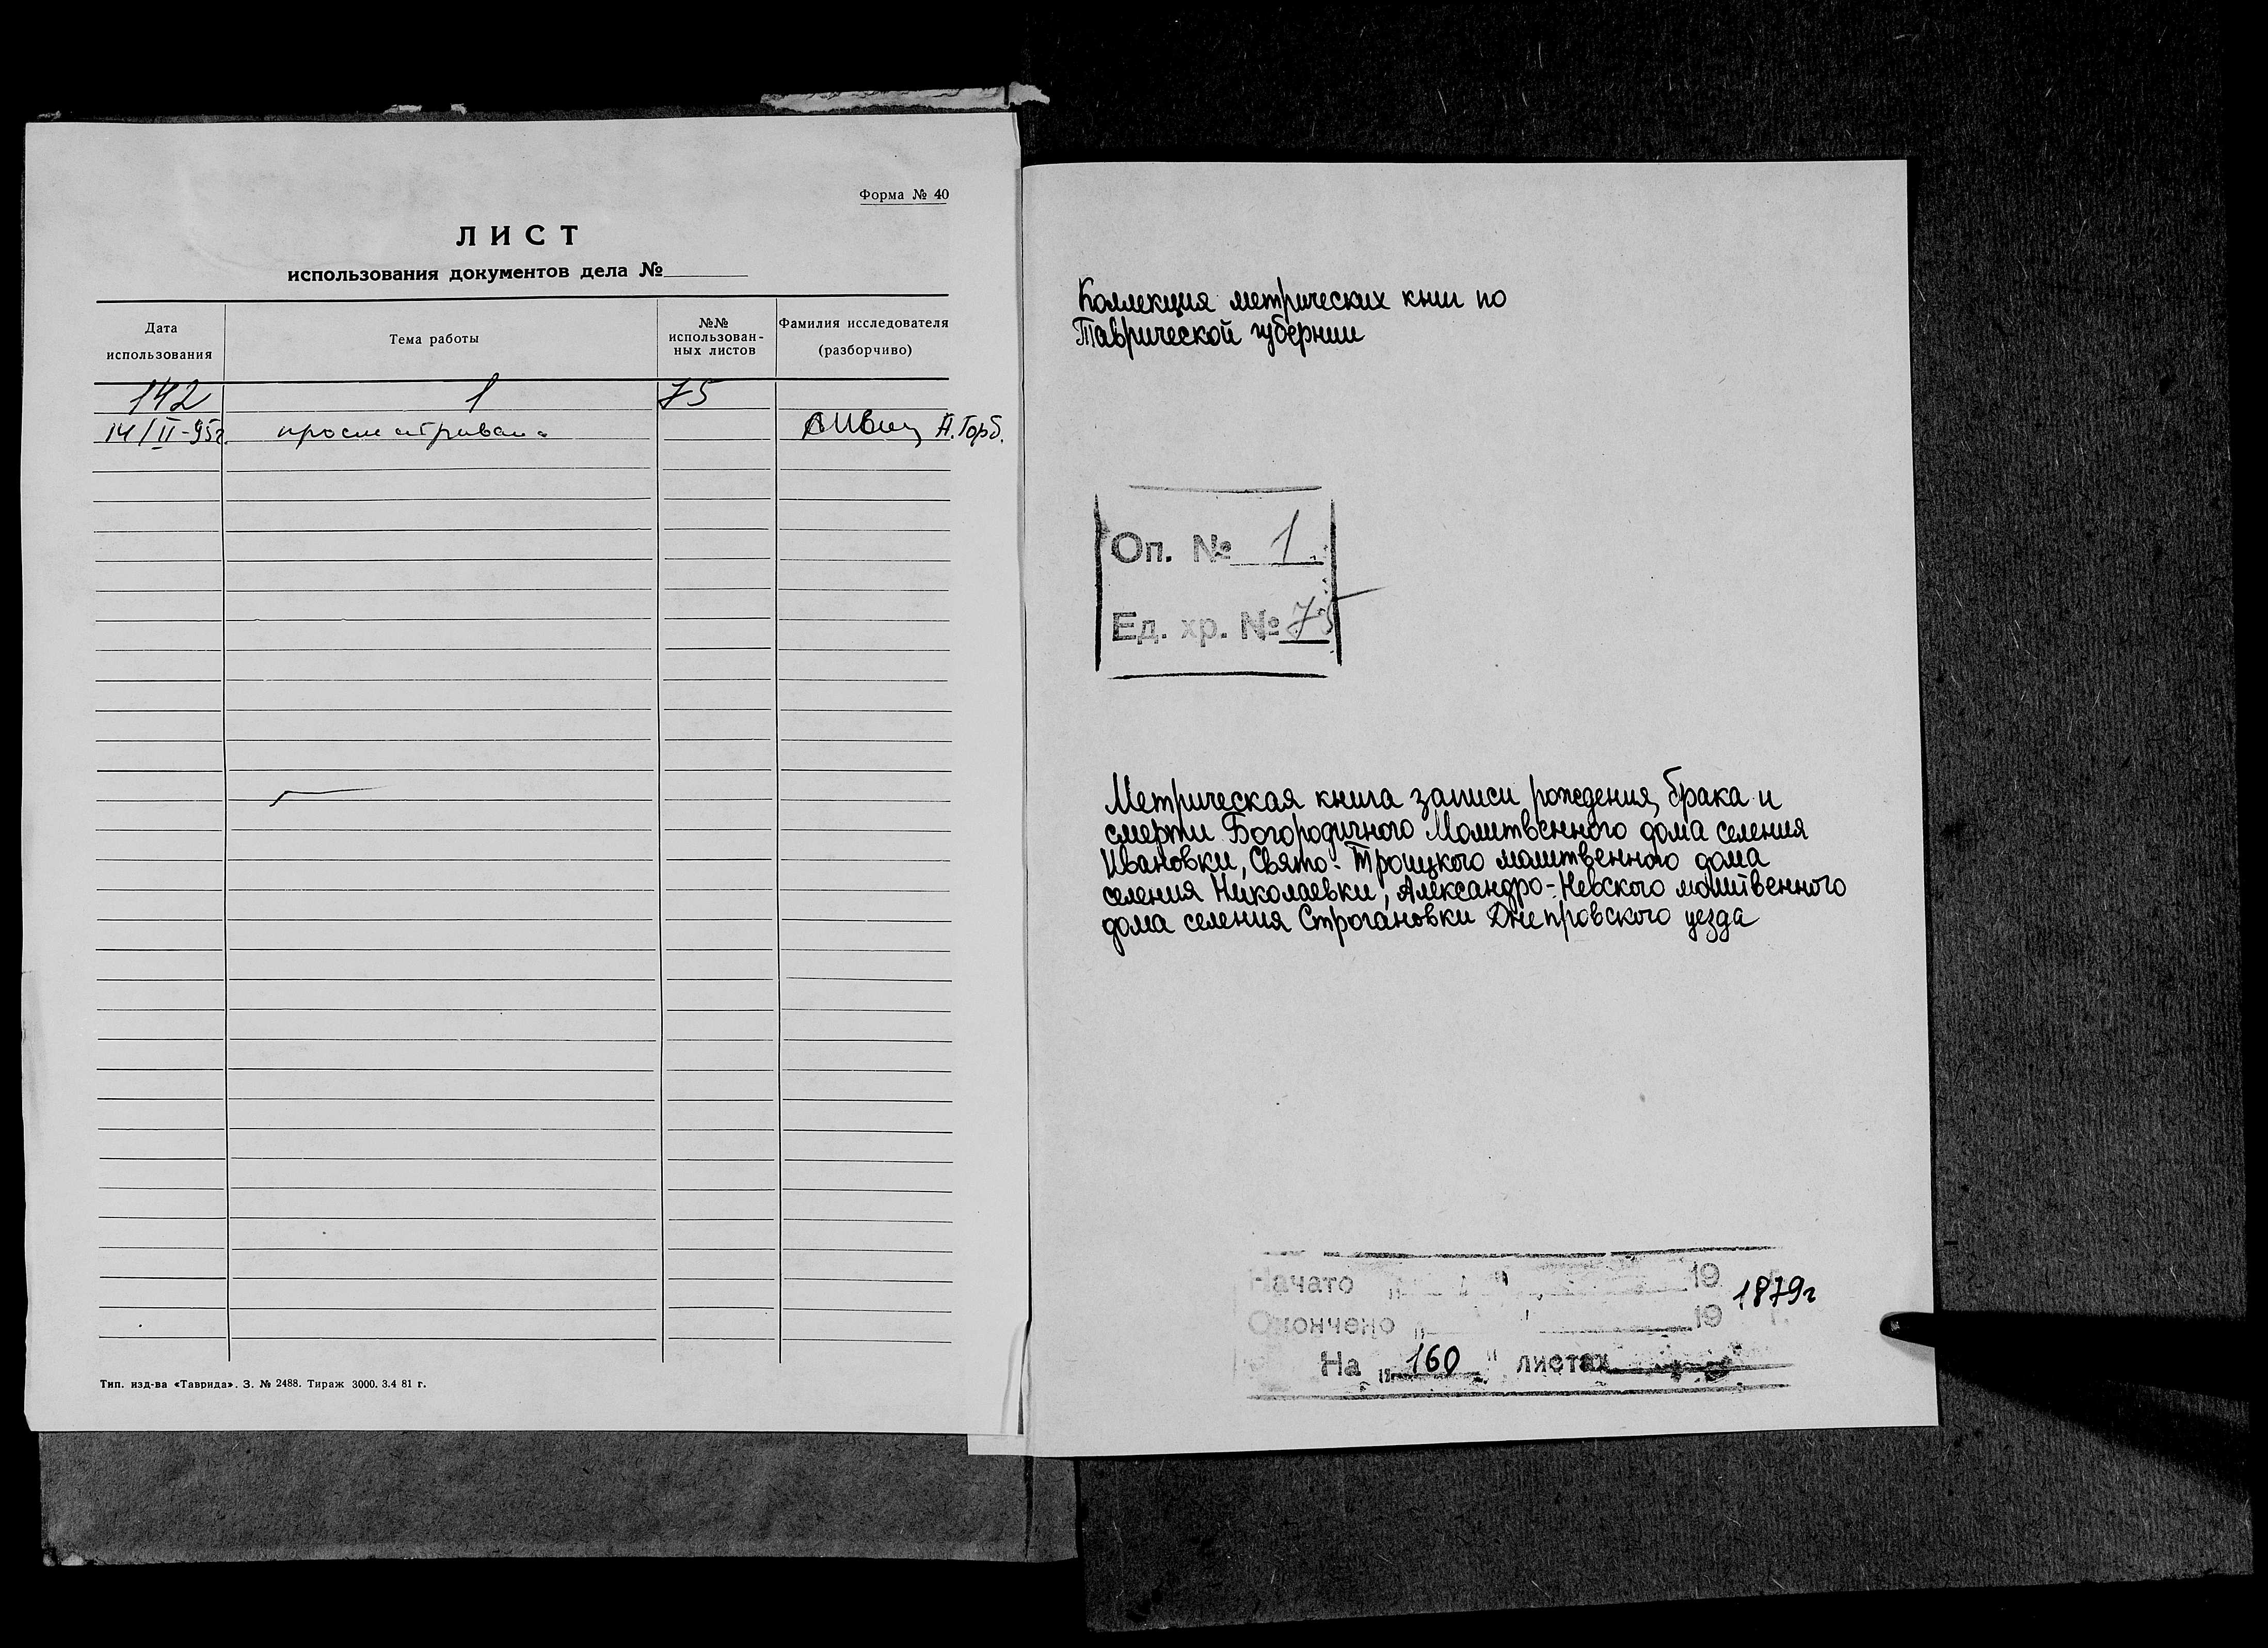 Форма № 40
ЛИСТ
использования документов дела №
Дата использования
Тема работы
№№ использован-
ных листов
Фамилия исследователя
(разборчиво)
142 1 75
14/II-95г. просматривала А. Горб.
Тип. изд-ва «Таврида». З. № 2488. Тираж 3000. 3.4 81 г.
Коллекция метрических книг по
Таврической губернии
Оп. № 1
Ед. хр. № 75
Метрическая книга записи рождения, брака и
смерти Богородичного Молитвенного дома селения
Ивановки, Свято-Троицкого молитвенного дома
селения Николаевки, Александро-Невского молитвенного
дома селения Строгановки Днепровского уезда
Начато „ " 19 г.
1879г
Окончено „ " 19 г.
На „160" листах